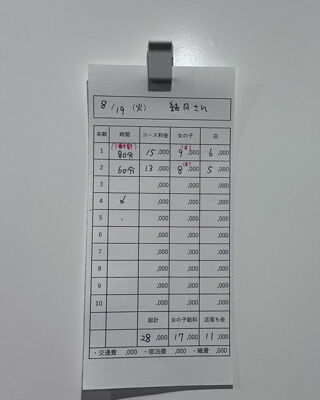 8/19 (火) 結月さん
本数 時間 コース料金 女の子 店
1 80分 15,000 9,000 6,000
2 60分 13,000 8,000 5,000
3 ,000 ,000 ,000
4 ,000 ,000 ,000
5 ,000 ,000 ,000
6 ,000 ,000 ,000
7 ,000 ,000 ,000
8 ,000 ,000 ,000
9 ,000 ,000 ,000
10 ,000 ,000 ,000
総計 女の子給料 店落ち金
28,000 17,000 11,000
・交通費 ,000 ・宿泊費 ,000 ・雑費 ,000